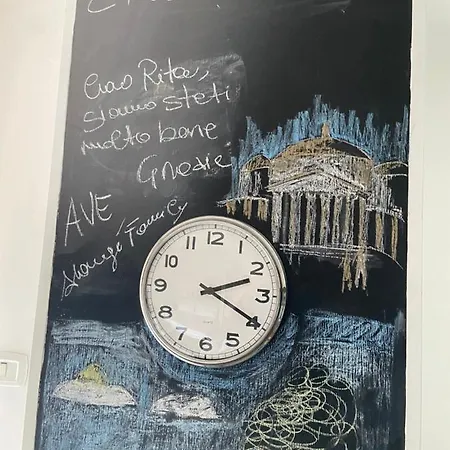 Ciao Rita,
siamo steti
molto bene
Gnazie
AVE
Family
12
1
2
3
4
5
6
7
8
9
10
11